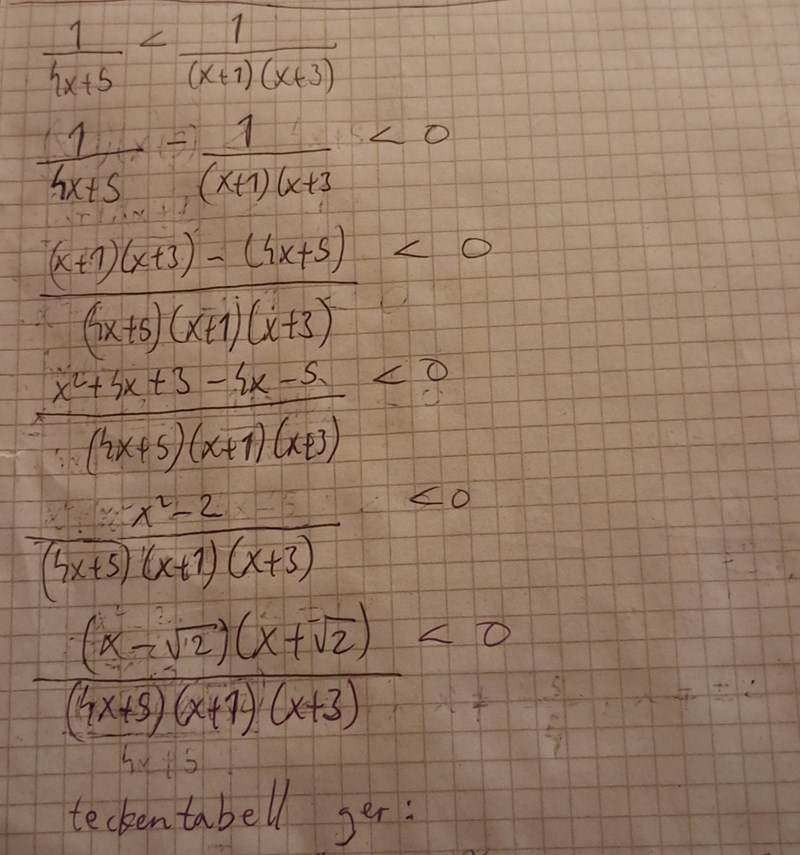 1/(4x+5) < 1/((x+1)(x+3))
1/(4x+5) - 1/((x+1)(x+3 < 0
((x+1)(x+3) - (4x+5))/((4x+5)(x+1)(x+3)) < 0
(x²+4x+3-4x-5)/((4x+5)(x+1)(x+3)) < 0
(x²-2)/((4x+5)(x+1)(x+3)) < 0
((x-√2)(x+√2))/((4x+5)(x+1)(x+3)) < 0
teckentabell ger: